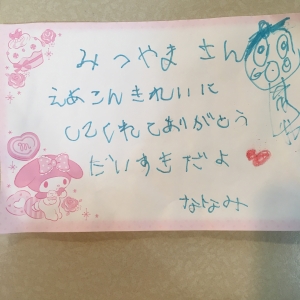 みつやまさん
えあこんきれいに
してくれてありがとう
だいすきだよ